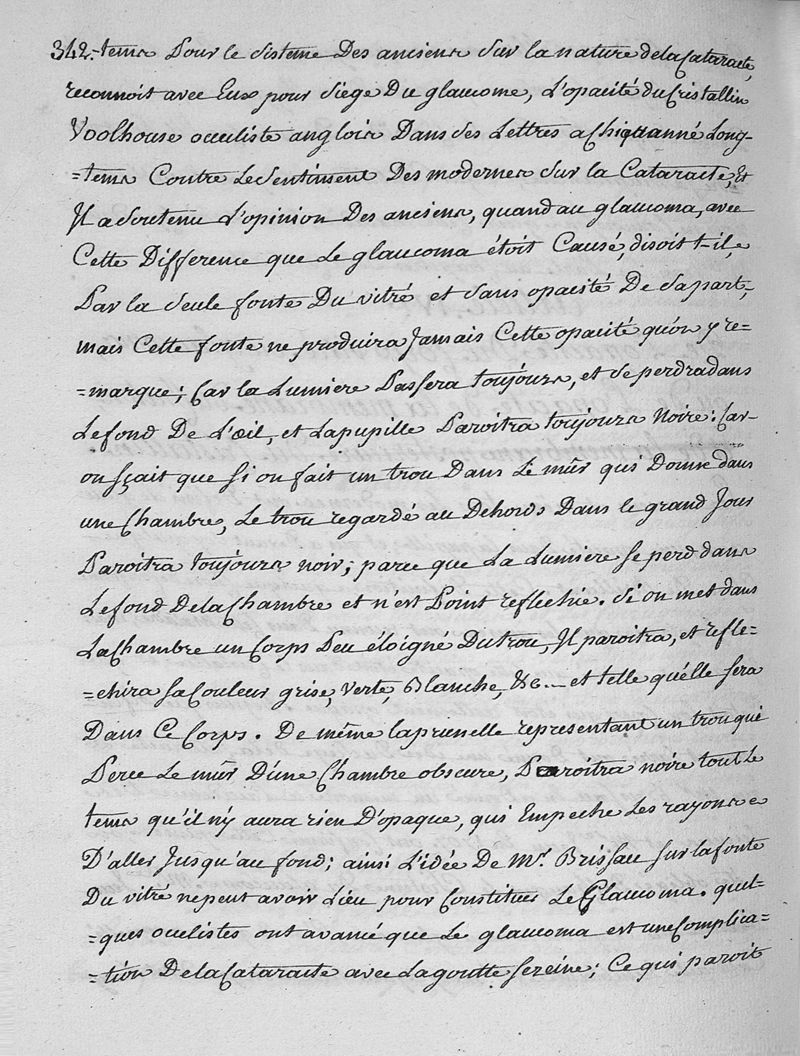 342.-tems Pour le sisteme Des anciens sur la nature de la Cataracte,
reconnoit avec Eux pour siege Du glaucome, L'opacité du Cristallin
Voolhouse oculiste anglois Dans ses Lettres a Chiquanné Long-
=tems Contre le sentiment Des modernes sur la Cataracte, Et
Il a soutenu L'opinion Des anciens, quand au glaucoma, avec
Cette Difference que Le glaucoma étoit Causé, disoit t-il,
Par la seule fonte Du vitré et sans opacité De sa part,
mais Cette fonte ne produira Jamais Cette opacité qu'on y re=
=marque; Car la Lumiere Passera toujours, et se perdra dans
Le fond De L'œil, et La pupille Paroitra toujours Noire: Car-
on sçait que si on fait un trou Dans Le mûr qui Donne dans
une Chambre, Le trou regardé au Dehors Dans le grand Jour
Paroitra toujours noir; parce que La Lumiere se perd dans
Le fond De la Chambre et n'est Point reflechie. Si on met dans
La Chambre un Corps Peu éloigné Du trou, Il paroitra, et refle=
=chira sa Couleur grise, verte, Blanche, &c... et telle qu'elle sera
Dans Ce Corps. De même la prunelle representant un trou qui
Perce Le mûr D'une Chambre obscure, Paroitra noire tout Le
tems qu'il n'y aura rien D'opaque, qui Empeche Les rayons
D'aller Jusqu'au fond; ainsi L'idée De Mr. Brisseau sur la fonte
Du vitré ne peut avoir Lieu pour Constituer Le Glaucoma. quel-
=ques oculistes ont avancé que Le glaucoma est une Complica=
=tion De la Cataracte avec La goutte sereine; Ce qui paroit